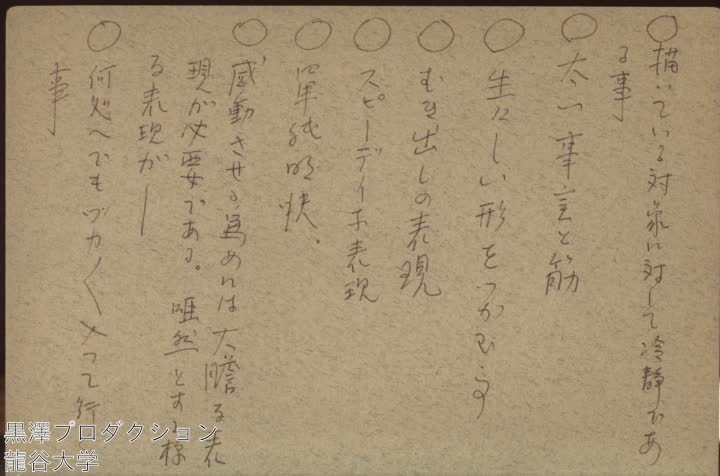 ○ 描いている対象に対して冷静であ
る事
○ 太い事実と筋
○ 生々しい形をつかむ事
○ むき出しの表現
○ スピーディな表現
○ 単純明快。
○ 感動させる為めには大膽る表
現が必要である。唖然とする様
る表現がー
○ 何処へでもヅカヅカ入って行く
事
黒澤プロダクション
龍谷大学